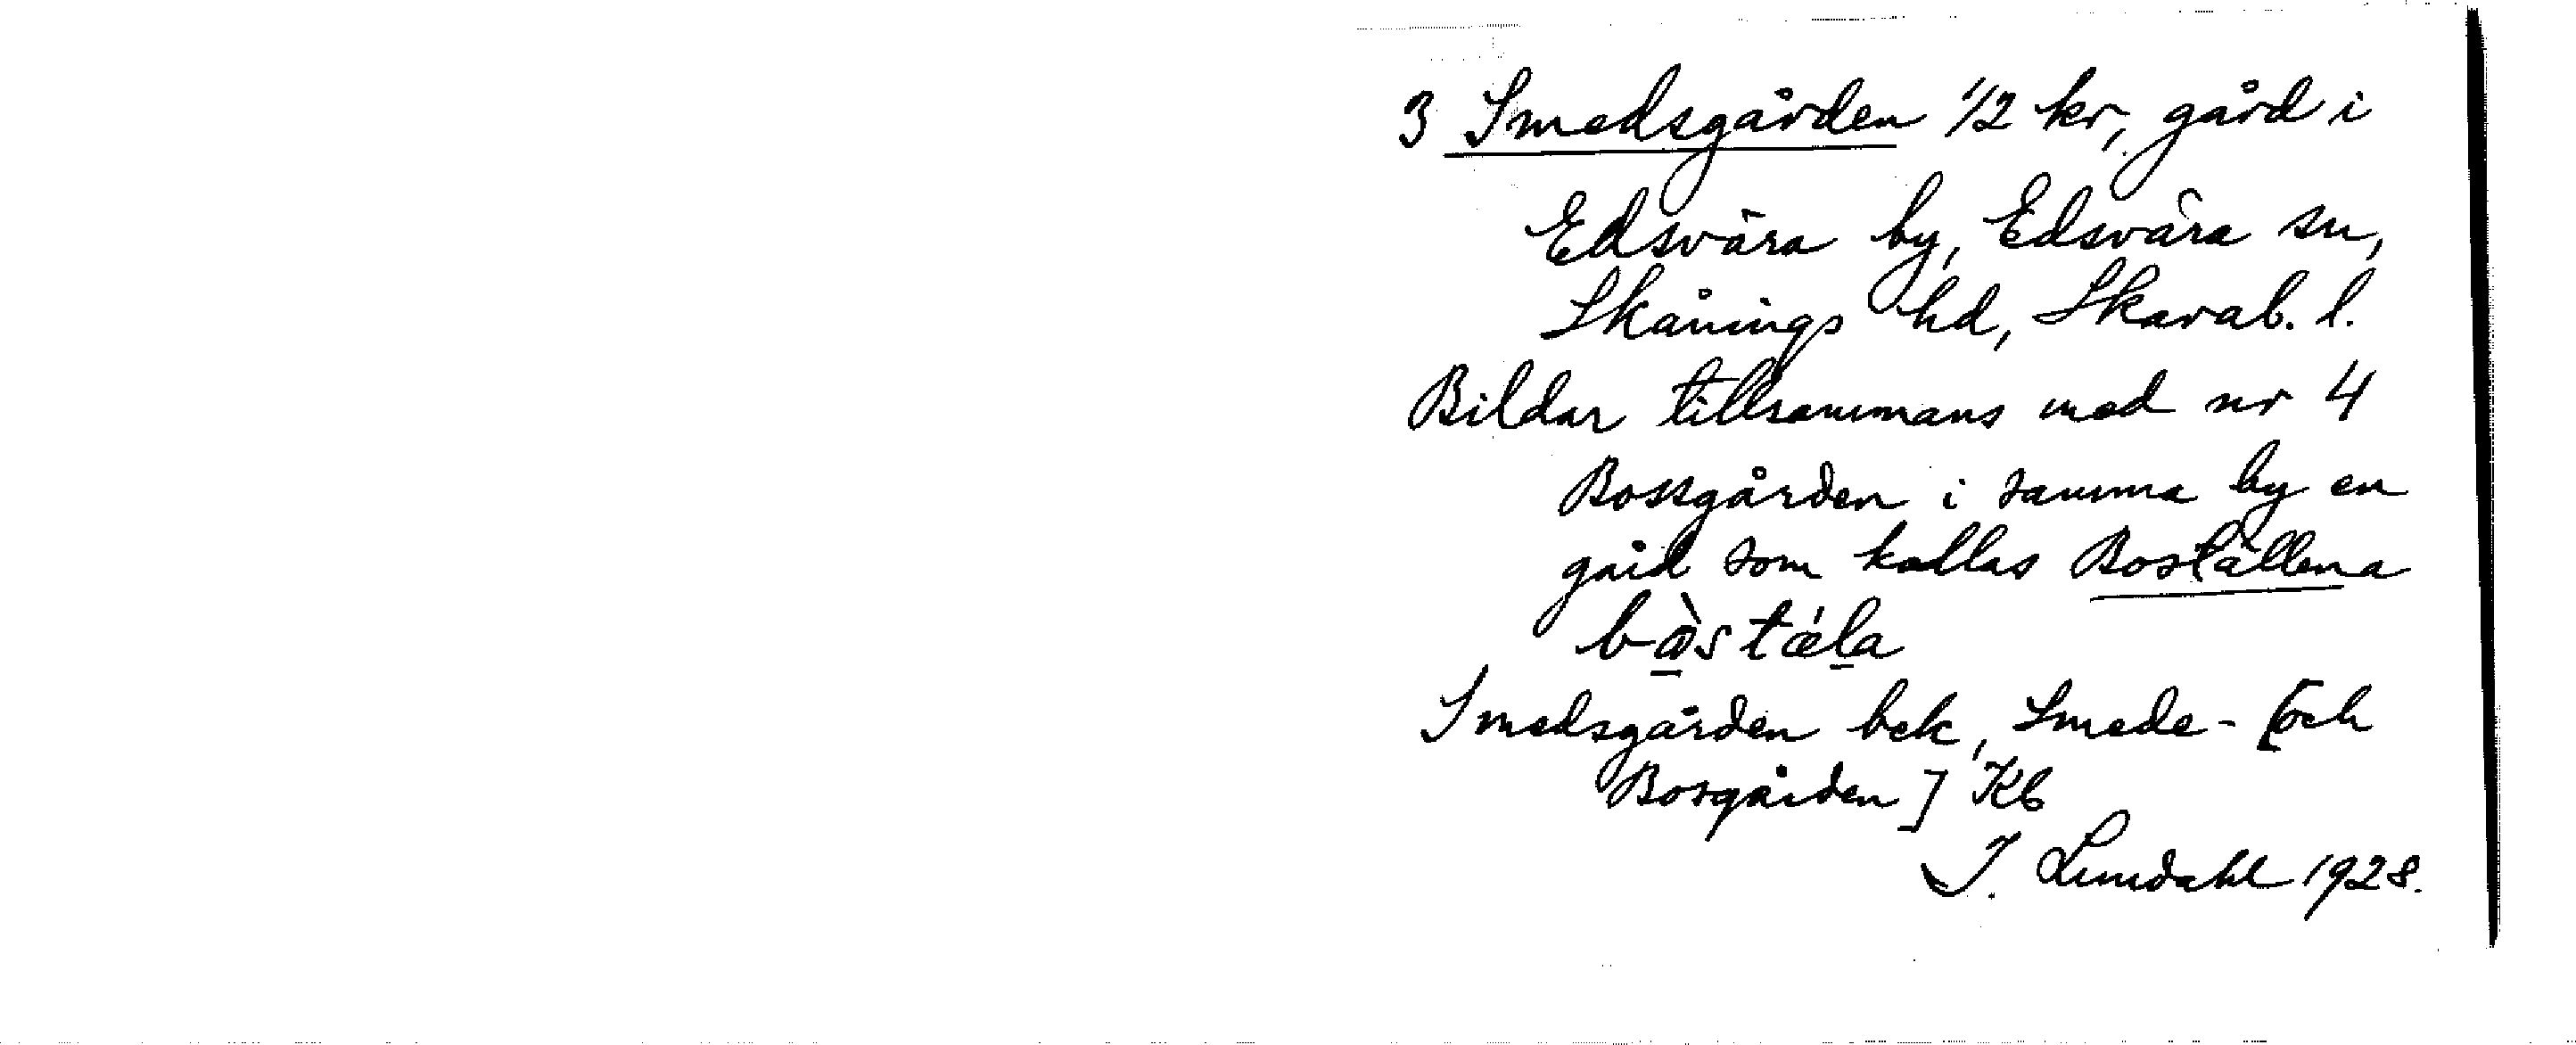 3 Smedsgården 1/2 kr, gård i
Edsvära by, Edsvära sn,
Skånings hd, Skarab. l.
Bildar tillsammans med nr 4
Bossgården i samma by en
gård som kallas Boställena
bò̱stǽl̠a
Smedsgården bek, Smede- [och
Bosgården] Kb
J. Lundahl 1928.